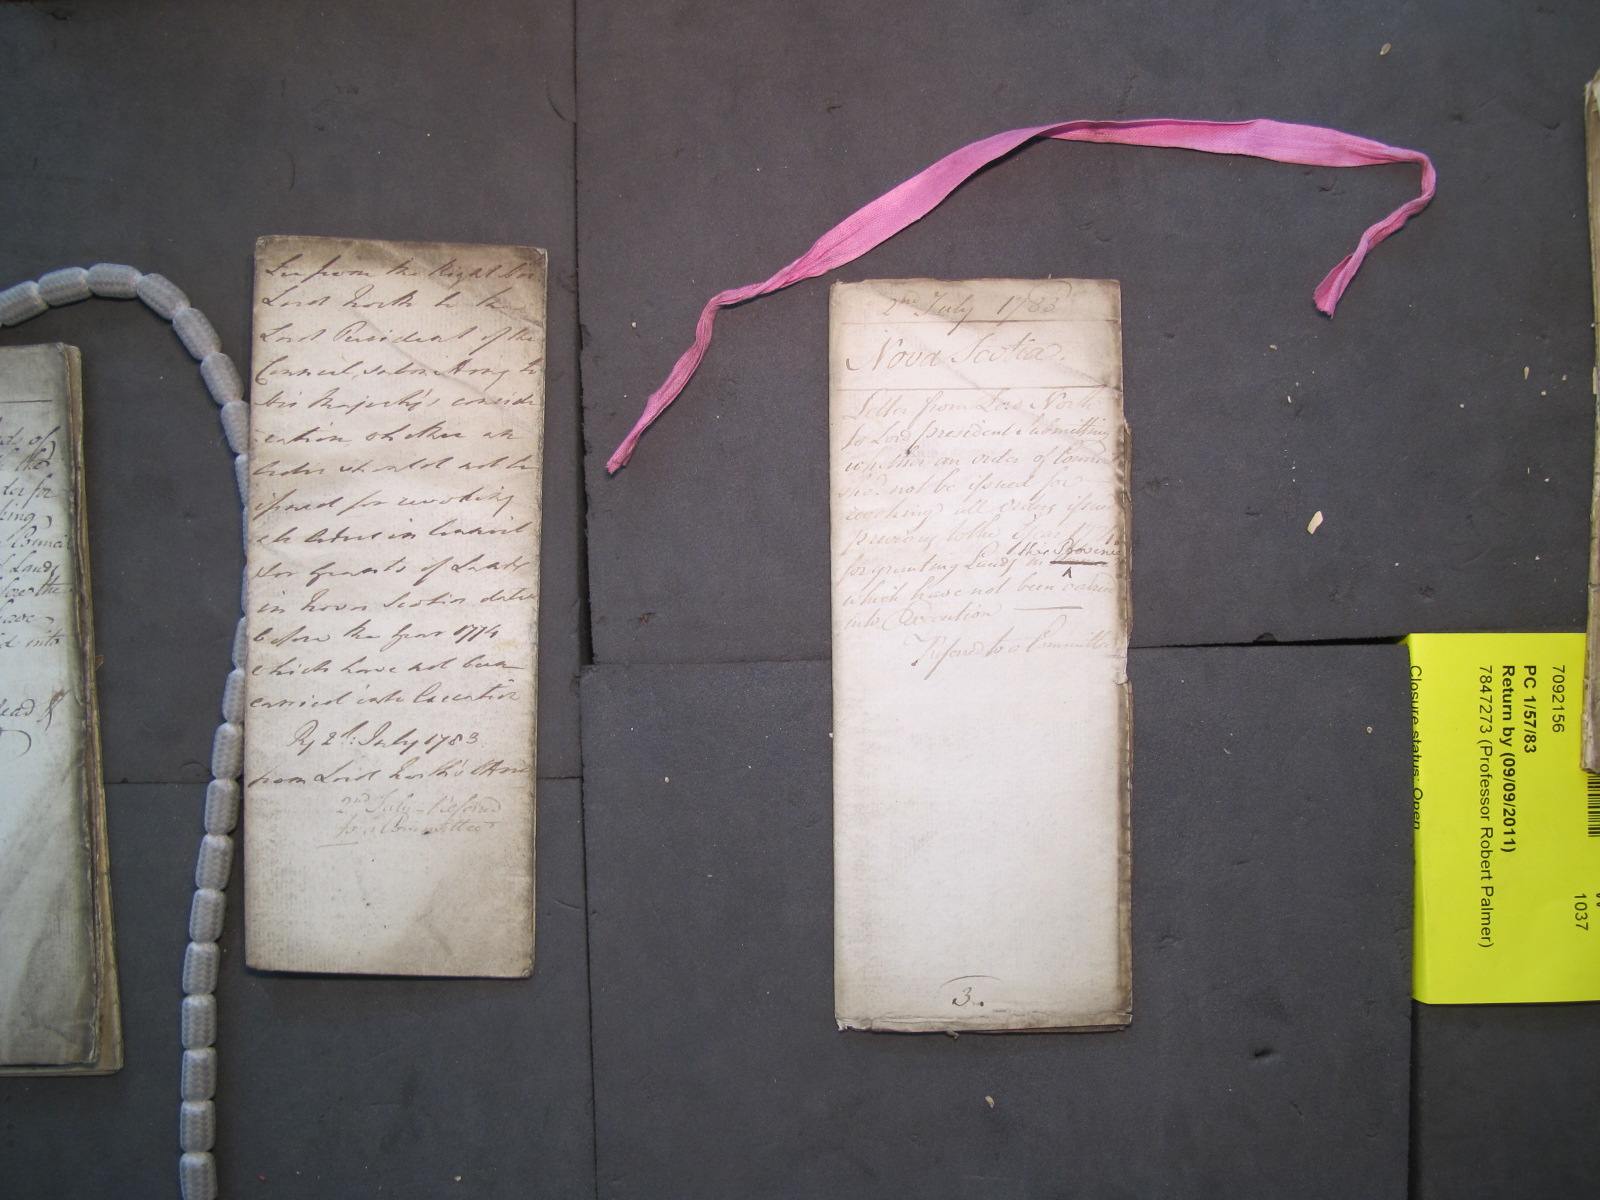 ds of
the
der for
king
Council
Lands
fore the
have
d into
ead
Lre from the Right Hon
Lord North to the
Lord President of the
Council, submitting to
his Majesty's conside
ration whether an
Order should not be
issued for revoking
all Orders in Council
for Grants of Lands
in Nova Scotia dated
before the Year 1774
which have not been
carried into Execution
R 2d. July 1783
from Lord North's Office
2nd July - Referred
to a Committee
2nd July 1783
Nova Scotia.
Letter from Lord North
to Lord president submitting
whether an order of Council
shod. not be issued for
revoking all orders issued
previous to the year 1774
this Province
for granting Lands in
which have not been carried
into Execution
Referred to a Committee
3.
7092156
PC 1/57/83
Return by (09/09/2011)
7847273 (Professor Robert Palmer)
Closure status: Open
1037